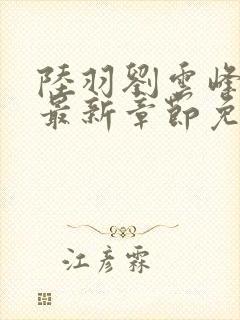 陸羽劉雲峰
最新章節免
江彦霖